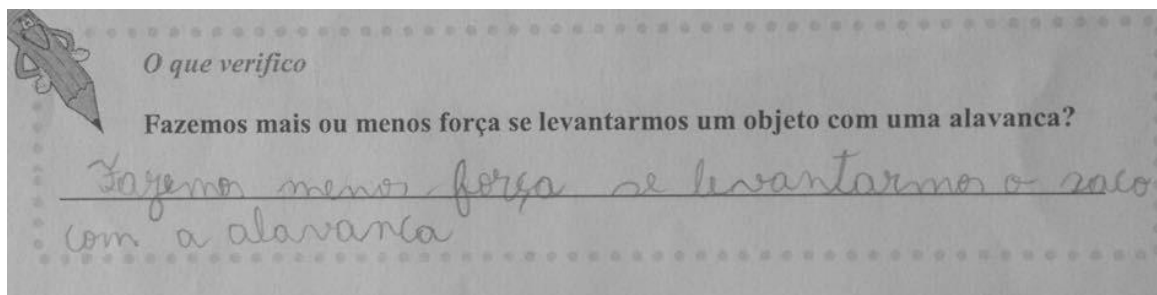 O que verifico
Fazemos mais ou menos força se levantarmos um objeto com uma alavanca?
Fazemos menos força se levantarmos o saco
com a alavanca